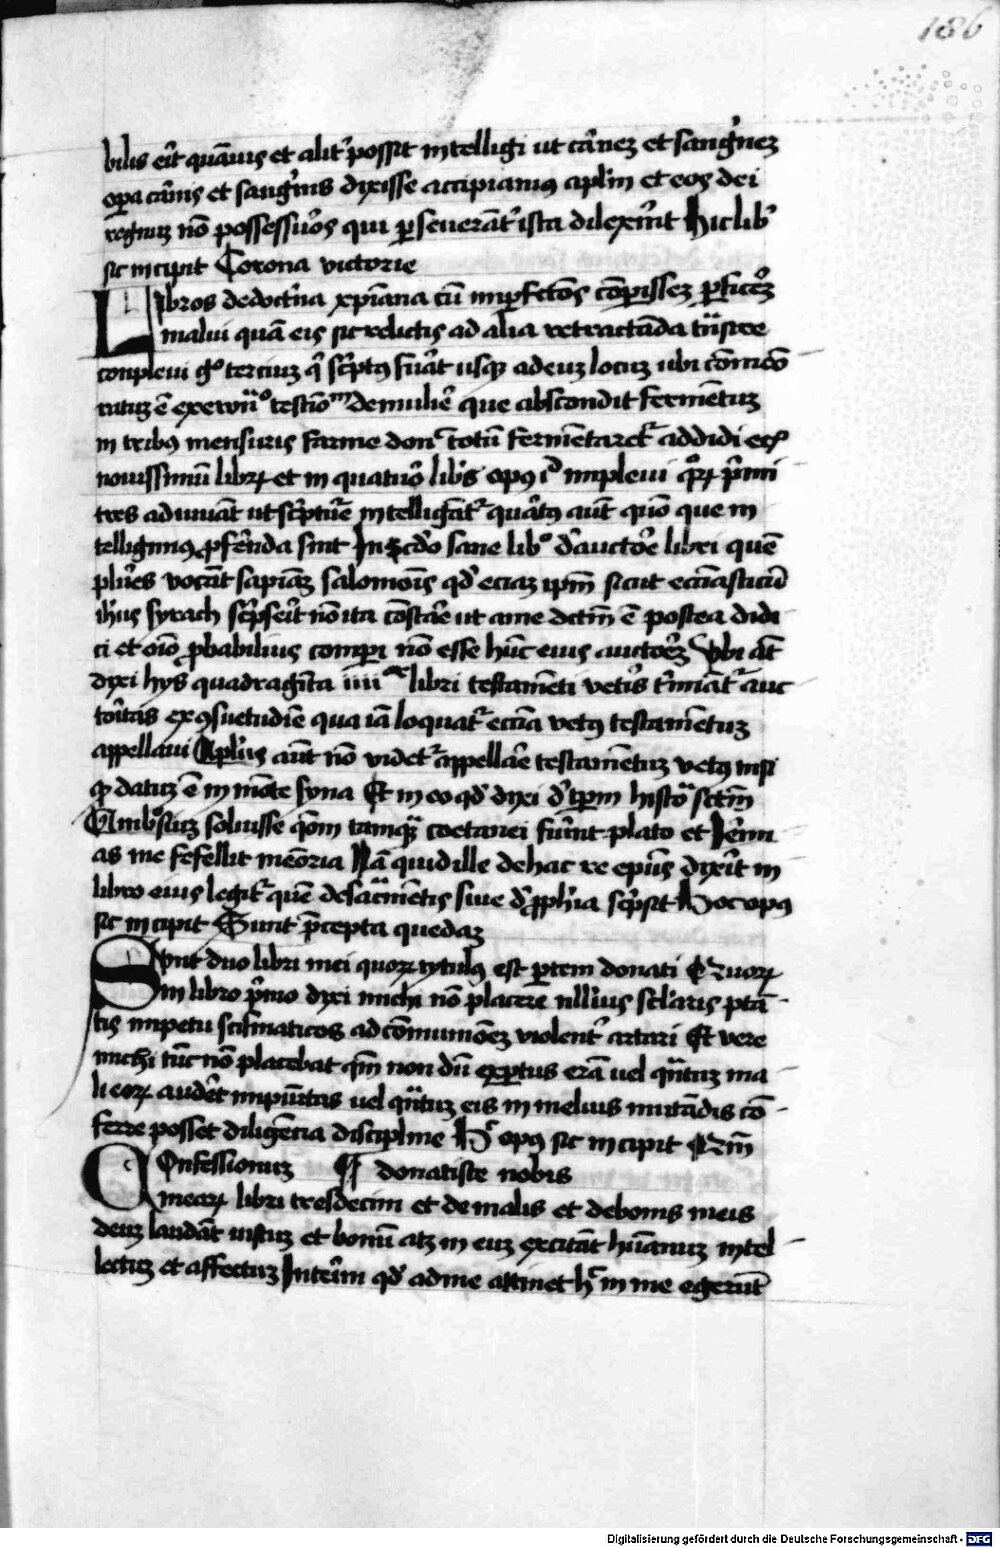 186
bilis erit quāuis et alit' possit intelligi ut carnez et sangnez
opera carnis et sanginis dixisse accipiamus aplm et eos dei
regnuz nō possessuros qui perseuerāt' ista dilexerint Hic lib'
sic incipit Corona victorie
Libros de doctina xpiana cū imperfectos cōperissez perficez
malui quā eis sic relictis ad alia retractāda transire
conpleui g° tercium q' scriptus fuat usque ad eum locuz ubi cōmēo
ratuz ē ex ewn° testio de muliere que abscondit fermētuz
in tribus mensuris farine don' totū fermētaret' addidi eci
nouissimū librum et in quatuor libris opus id impleui quorum primi
tres adiuuāt ut scripture intelligāt' quartus aūt quo que in
telligimus proferēda sint In scdo sane libro de auctore libri quē
plures vocāt sapiam salomōis qd' eciaz ipm sicut ecciasticū
ihus syrach scripserit nō ita cōstare ut a me dctm ē postea didi
ci et oīo probabilius comperi nō esse hūc eius auctorez Vbi at
dixi hys quadraginta iiii libri testamēti veteris t'minat' auc
toritas ex cōsuetudīe qua iā loquat' eccia vetus testamētuz
appellaui Aplus aūt nō videt' appellare testamētuz vetus nisi
quod datuz ē in mōte syna Et in eo qd' dixi de tpm historia sctm
Ambrosiuz soluisse qōm tamquam coetanei fuerint plato et Ieremi
as me fefellit memoria Nā quid ille de hac re epus dixerit in
libro eius legit' quē de sacramētis siue de phia scripsit Hoc opus
sic incipit Sunt precepta quedaz
Sunt duo libri mei quorum tytulus est partem donati Quorum
in libro primo dixi michi nō placere ullius sclaris pta
tis impetu scismaticos ad cōmunionez violent' artari Et vere
michi tūc nō placebat qm non dū expertus erā uel quātuz ma
li eorum auderet impunitas uel quātuz eis in melius mutādis cō
ferre posset diligēcia discipline H' opus sic incipit Qm
Confessionuz ¶ donatiste nobis
mearum libri tresdecim et de malis et de bonis meis
deuz laudāt iustuz et bonū atque in euz excitāt hūanuz intel
lectuz et affectuz Interim qd' ad me attinet h' in me egerūt
Digitalisierung gefördert durch die Deutsche Forschungsgemeinschaft - DFG